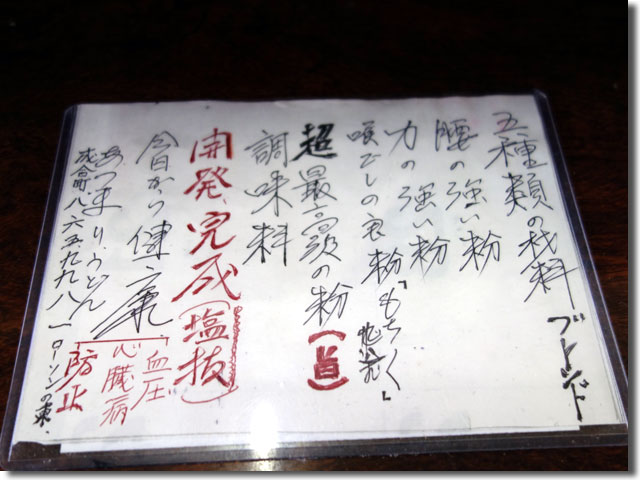 五種類の材料 ブレンド
腰の強い粉
力の強い粉
喉ごしの良い粉「もちく
超最高領の粉（旨）
調味料
開発、完成（塩抜）
今日から健康「血圧
心臓病
防止
あつまり、うどん
成合町八六五、九九八一ローソンの東．